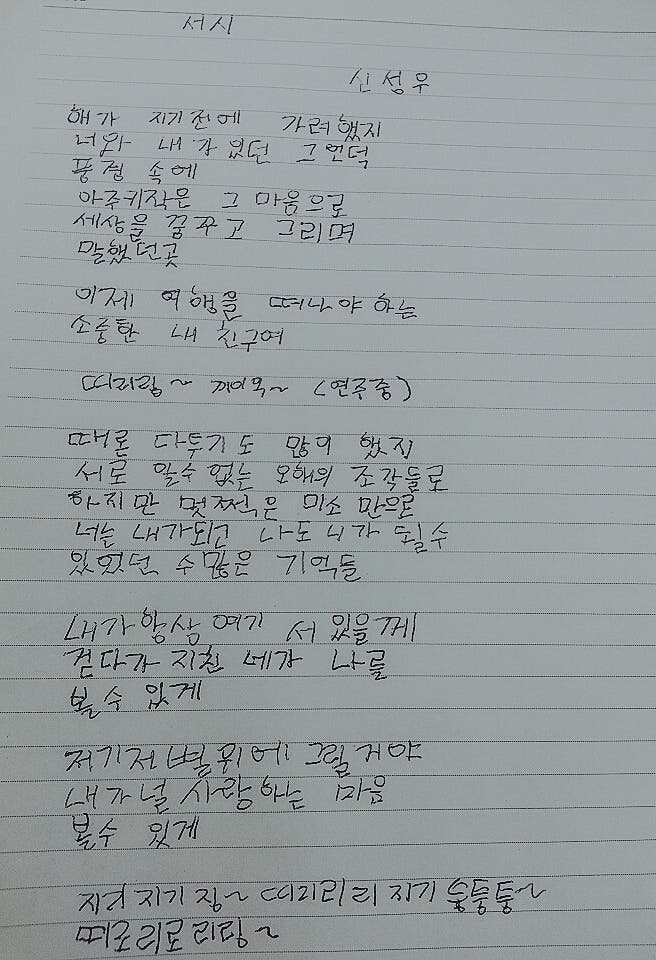 서시
신성우
해가 지기전에 가려했지
너와 내가 있던 그 언덕
풍경 속에
아주키작은 그 마음으로
세상을 꿈꾸고 그리며
말했던곳
이제 여행을 떠나야 하는
소중한 내 친구여
띠리링~ 께이옥~ (연주중)
때론 다투기도 많이 했지
서로 알수 없는 오해의 조각들로
하지만 멋쩍은 미소 만으로
너는 내가되고 나도 니가 될 수
있었던 수많은 기억들
내가 항상 여기 서 있을께
걷다가 지친 네가 나를
볼수 있게
저기저 별 위에 그릴거야
내가 널 사랑하는 마음
볼수 있게
지기 징~ 띠리리리 지기 퉁퉁~
띠로리로리링~